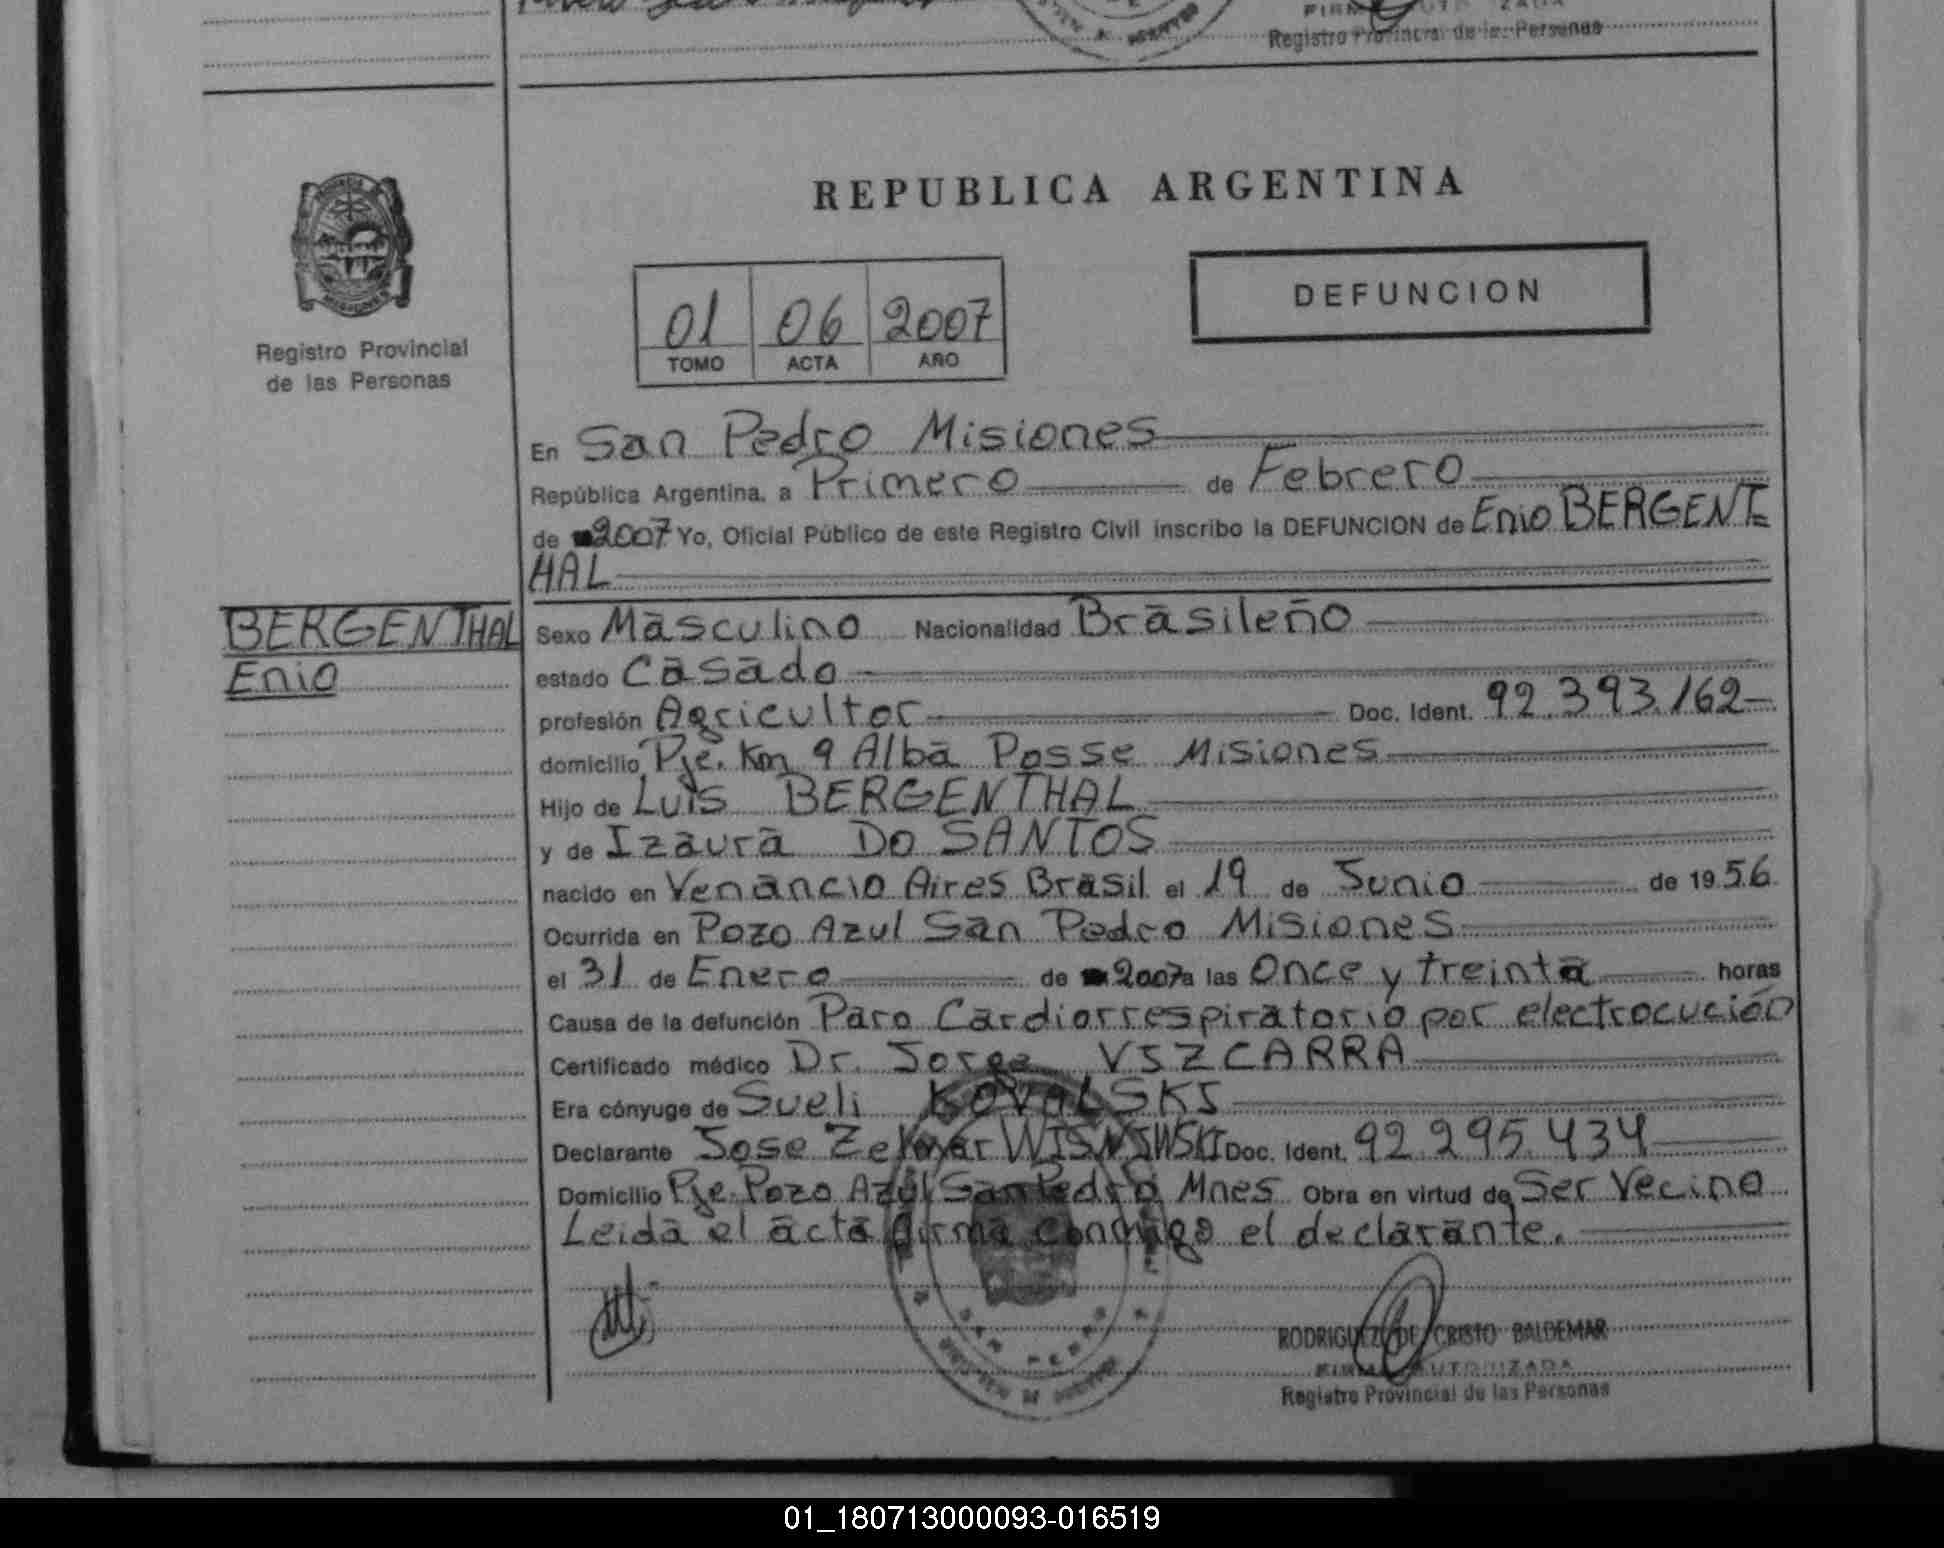 Registro Provincial de las Personas
REPUBLICA ARGENTINA
01 06 2007
TOMO ACTA AÑO
DEFUNCION
MISIONES
Registro Provincial
de las Personas
En San Pedro Misiones
República Argentina, a Primero de Febrero
de 2007 Yo, Oficial Público de este Registro Civil inscribo la DEFUNCION de Enio BERGENT
HAL
BERGENTHAL
Enio
Sexo Masculino Nacionalidad Brasileño
estado Casado
profesión Agricultor Doc. Ident. 92.393.162
domicilio Pje. Km 9 Alba Posse Misiones
Hijo de Luis BERGENTHAL
y de Izaura DO SANTOS
nacido en Venancio Aires Brasil el 19 de Junio de 1956
Ocurrida en Pozo Azul San Pedro Misiones
el 31 de Enero de 2007 a las Once y treinta horas
Causa de la defunción Paro Cardiorrespiratorio por electrocución
Certificado médico Dr. Jorge VIZCARRA
Era cónyuge de Sueli KOVALSKI
Declarante Jose Zelmar WISNIWSKI Doc. Ident. 92.295.434
Domicilio Pje. Pozo Azul San Pedro Mnes Obra en virtud de Ser Vecino
Leida el acta firma conmigo el declarante.
RODRIGUEZ DE CRISTO BALDEMAR
FIRMA AUTORIZADA
Registro Provincial de las Personas
01_180713000093-016519